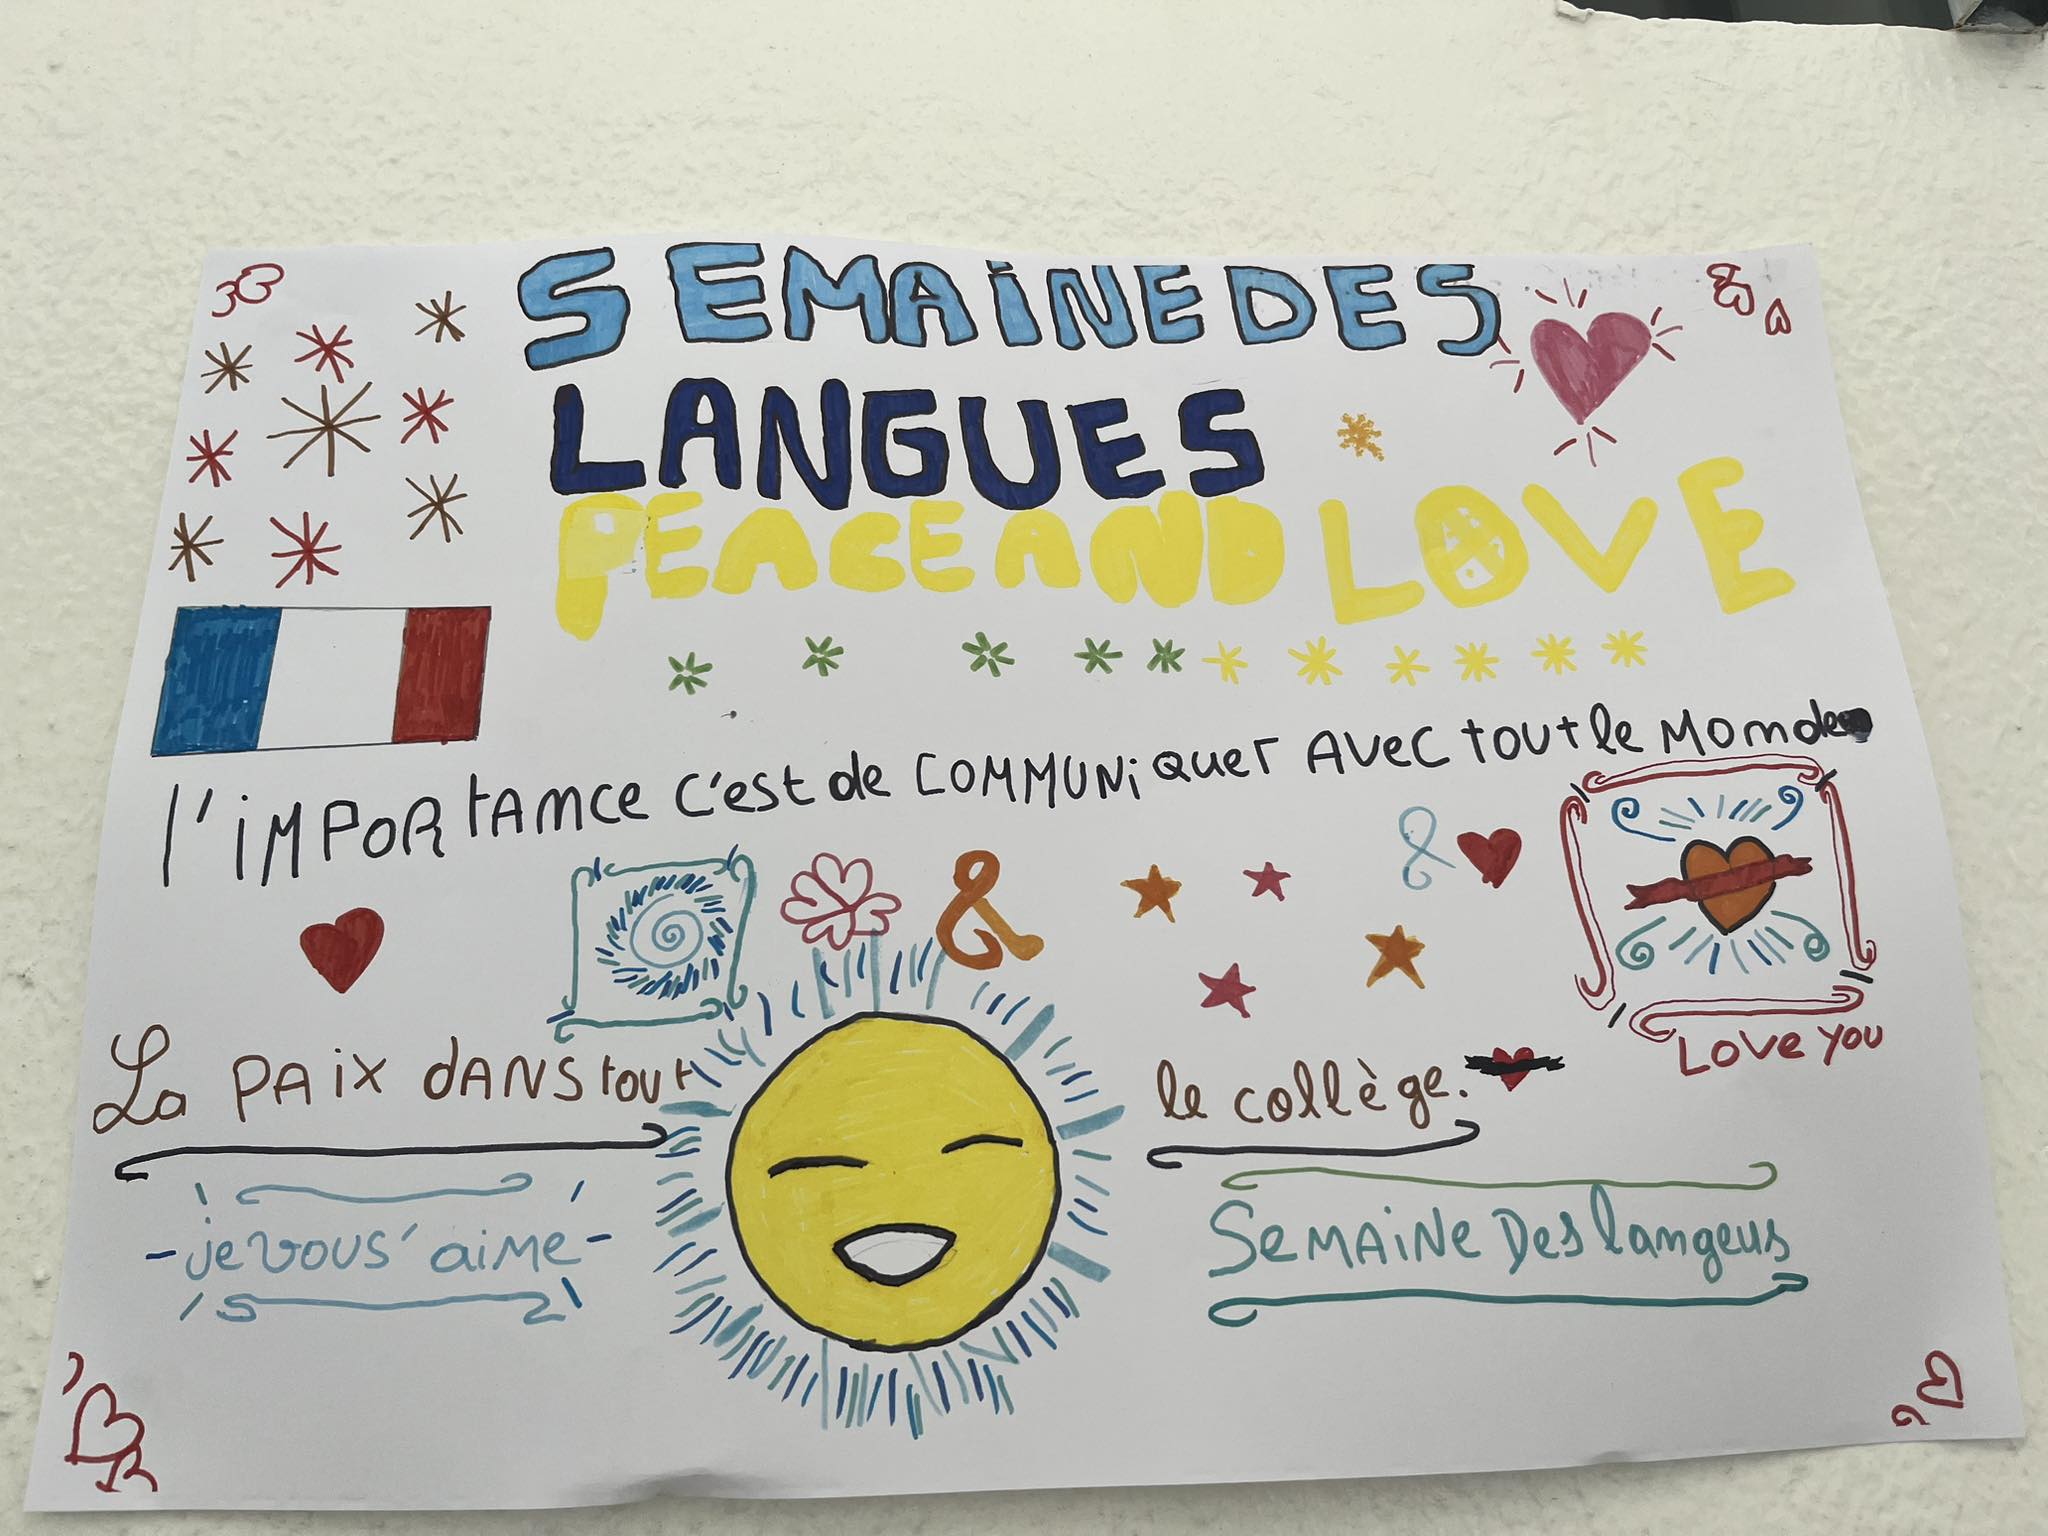 SEMAiNE DES
LANGUES
PEACE AND LOVE
l'iMPORtANCE C'est de COMMUNiQuer AVeC tout le Monde
&
&
Love you
La PAix dANS tout le collège.
je vous' aime
SeMAiNe Des langeus